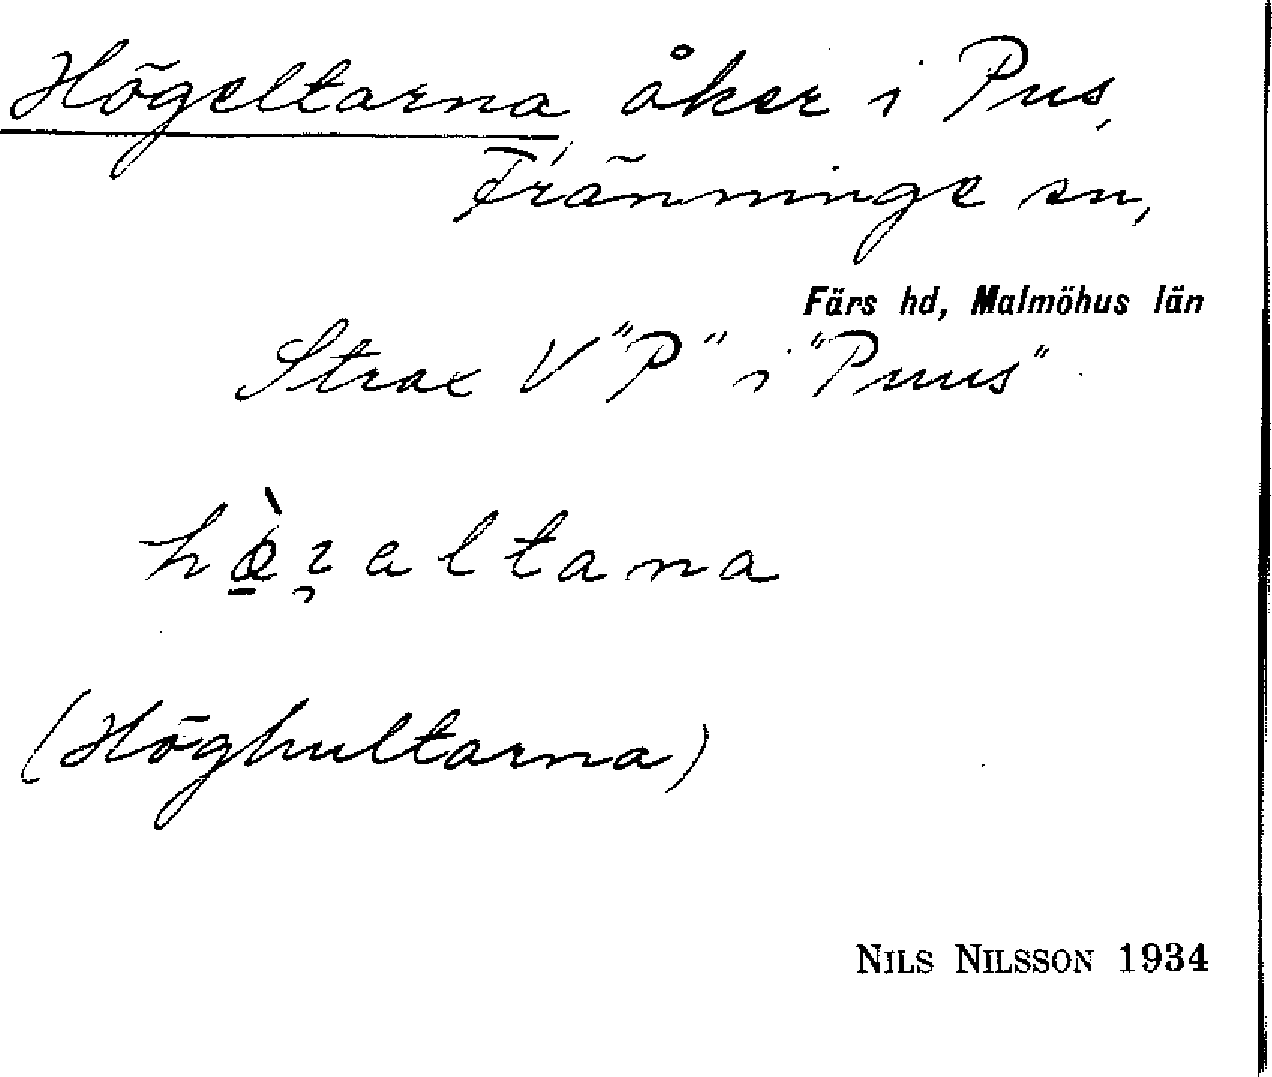 Högeltarna, åker i Pus,
Fränninge sn,
Färs hd, Malmöhus län
Strax V "P" i "Puus"
(Höghultarna)
NILS NILSSON 1934